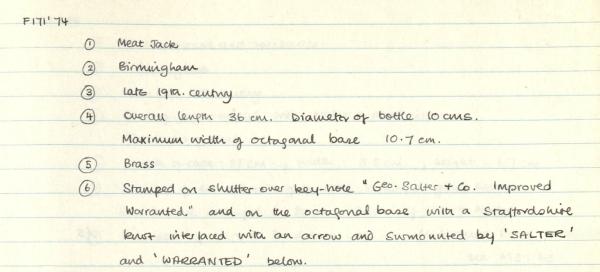 F171'74
① Meat Jack
② Birmingham
③ Late 19th. century
④ Overall length 36 cm. Diameter of bottle 10 cms.
Maximum width of octagonal base 10.7 cm.
⑤ Brass
⑥ Stamped on shutter over key-hole "Geo. Salter + Co. Improved
Warranted." and on the octagonal base with a Staffordshire
knot interlaced with an arrow and surmounted by 'SALTER'
and 'WARRANTED' below.